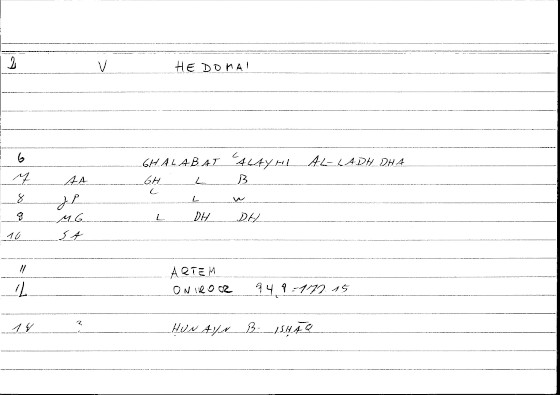 2 V HEDOMAI
6 GHALABAT ʿALAYHI AL-LADHDHA
7 AA GH L B
8 JP ʿ L W
9 MG L DH DH
10 SA
11 ARTEM
12 ONIROCR 94,9-177 15
18 ? ḤUNAYN B. ISḤĀQ